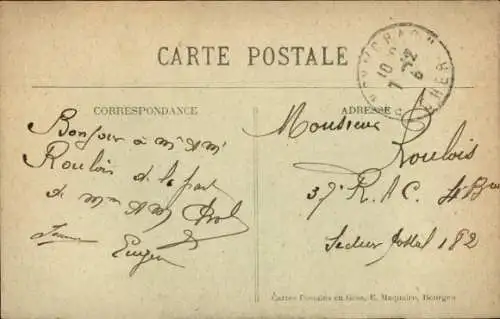 CARTE POSTALE
CORRESPONDANCE
Bonjour à Mr & Mme
Roulois de la part
de Mme & Mr
Eugène
ADRESSE
Monsieur
Roulois
37e R.A.C. 4e
Secteur postal 182
CHER
Cartes Postales en Gros, E. Maquaire, Bourges